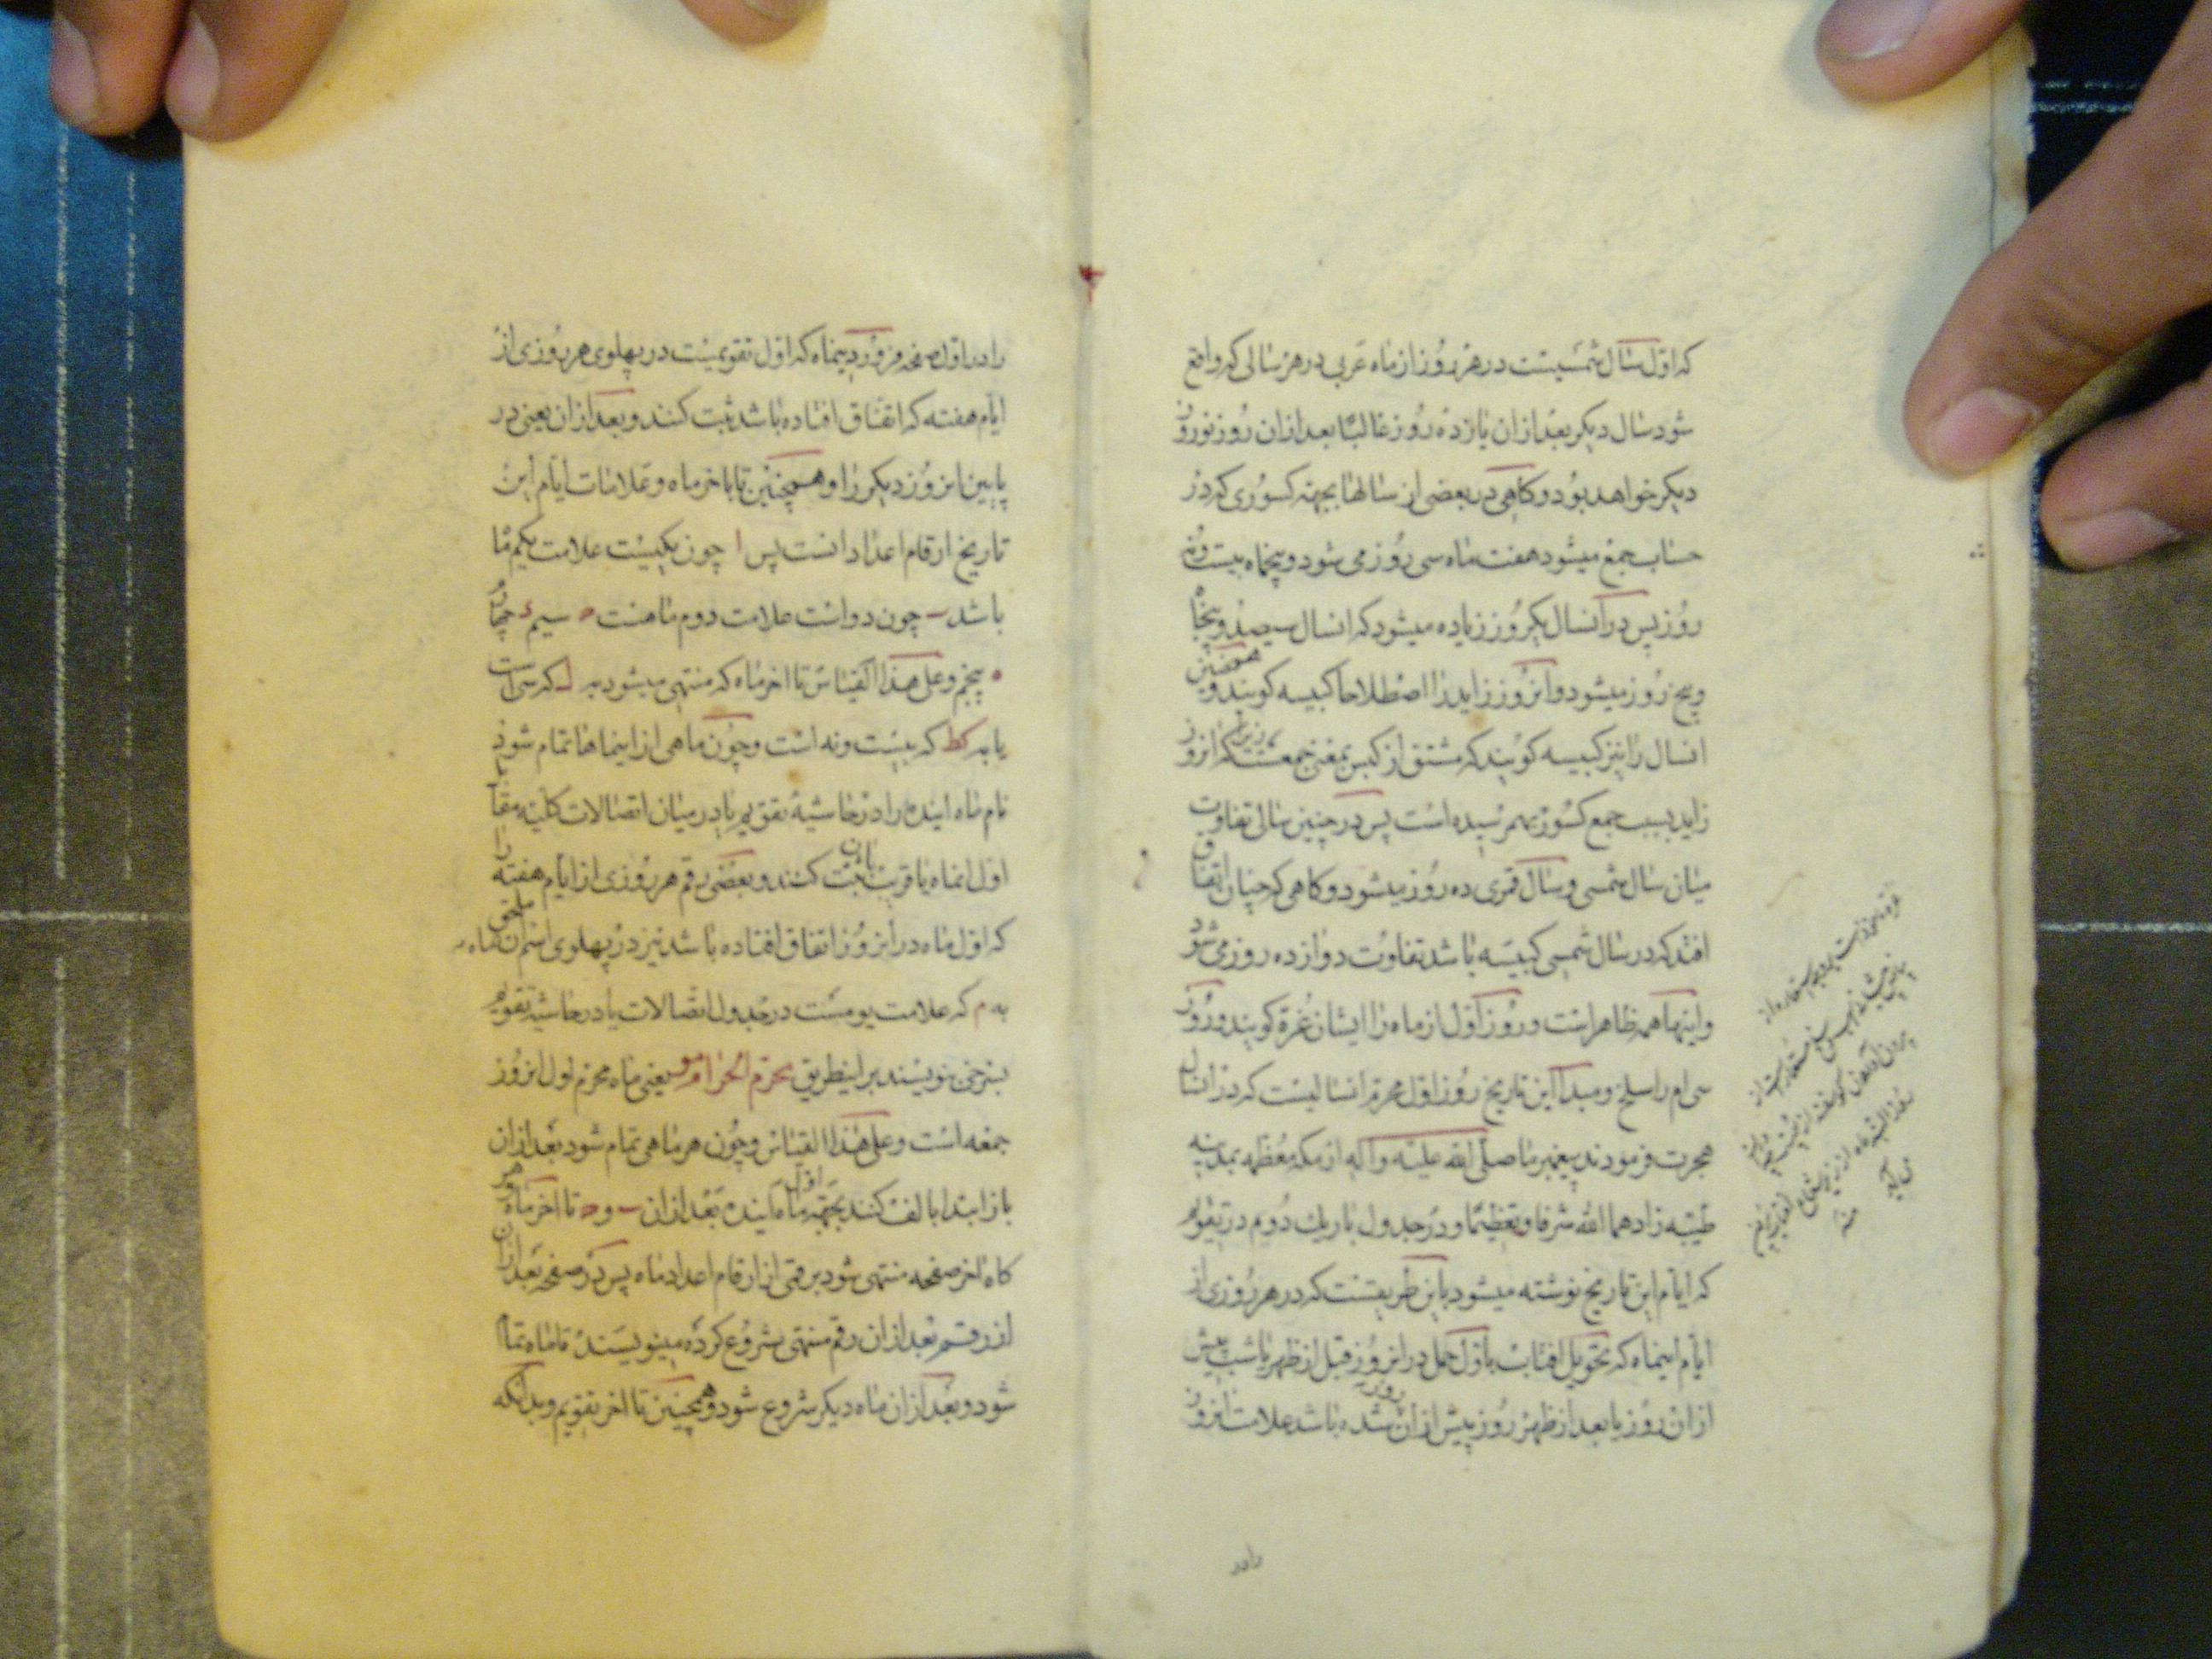 که اول سال شمسیست در هر روز از ماه عربی در هر سالی که واقع
شود سال دیکر بعد از ان یازده روز غالبا بعد از ان روز نوروز
دیکر خواهد بود و کاهی در بعضی از سالها بجهته کسوری که در
حساب جمع میشود هفت ماه سی روز می شود و پنجماه بیست و نه
روز پس در انسال یکروز زیاده میشود که انسال سیصد و پنجاه
و پنج روز میشود و انروز زاید را اصطلاحا کبیسه کویند و همچنین
انسال را نیز کبیسه کویند که مشتق از کبس بمعنی جمعست زیرا که انروز
زاید بسبب جمع کسور بهم رسیده است پس در چنین سالی تفاوت
میان سال شمسی و سال قمری ده روز میشود و کاهی که چنان اتفاق
افتد که در سال شمسی کبیسه باشد تفاوت دوازده روز می شود
و اینها همه ظاهر است و روز اول از ماه را ایشان غره کویند و روز
سی ام را سلخ و مبدا این تاریخ روز اول محرم انسالیست که در انسال
هجرت فرمودند پیغمبر ما صلی الله علیه و آله از مکه معظمه بمدینه
طیبه زادهما الله شرفا و تعظیما و در جدول باریك دوم در تقویم
که ایام این تاریخ نوشته میشود باین طریقست که در هر روزی از
ایام اینماه که تحویل افتاب باول حمل در انروز قبل از ظهر یا شب پیش
از ان روز یا بعد از ظهر روز پیش از ان روز شده باشد علامت انروز
رادر
را در اول صفحه فروردینماه که اول تقویمست در پهلوی هر روزی از
ایام هفته که اتفاق افتاده باشد ثبت کنند و بعد از ان یعنی در
پایین انروز دیکر را و همچنین تا باخر ماه و علامات ایام این
تاریخ ارقام اعداد است پس ا چون یکیست علامت یکم ماه
باشد ب چون دو است علامت دوم ماهست ج سیم د چهارم
ه پنجم و علی هذا القیاس تا اخر ماه که منتهی میشود به ل که سی است
یا به کط که بیست و نه است و چون ماهی از اینماها تمام شود
نام ماه اینده را در حاشیهٔ تقویم یا در میان اتصالات کلیه مقابل
اول انماه یا قریب بان ثبت کنند و بعضی رقم هر روزی از ایام هفته را
که اول ماه در انروز اتفاق افتاده باشد نیز در پهلوی اسم ان ماه ملحق
به م که علامت یومست در جدول اتصالات یا در حاشیه تقویم
بسرخی نویسند بر اینطریق محرم الحرام مو یعنی ماه محرم اول انروز
جمعه است و علی هذا القیاس و چون هر ماهی تمام شود بعد از ان
باز ابتدا بالف کنند بجهته اول ماه اینده بعد از ان ب و ج تا اخر ماه هر
کاه اخر صفحه منتهی شود برقمی از ارقام اعداد ماه پس در صفحه بعد از ان
از رقم بعد از ان رقم منتهی شروع کرده مینویسند تا ماه تمام
شود و بعد از ان ماه دیکر شروع شود و همچنین تا اخر تقویم و بدانکه